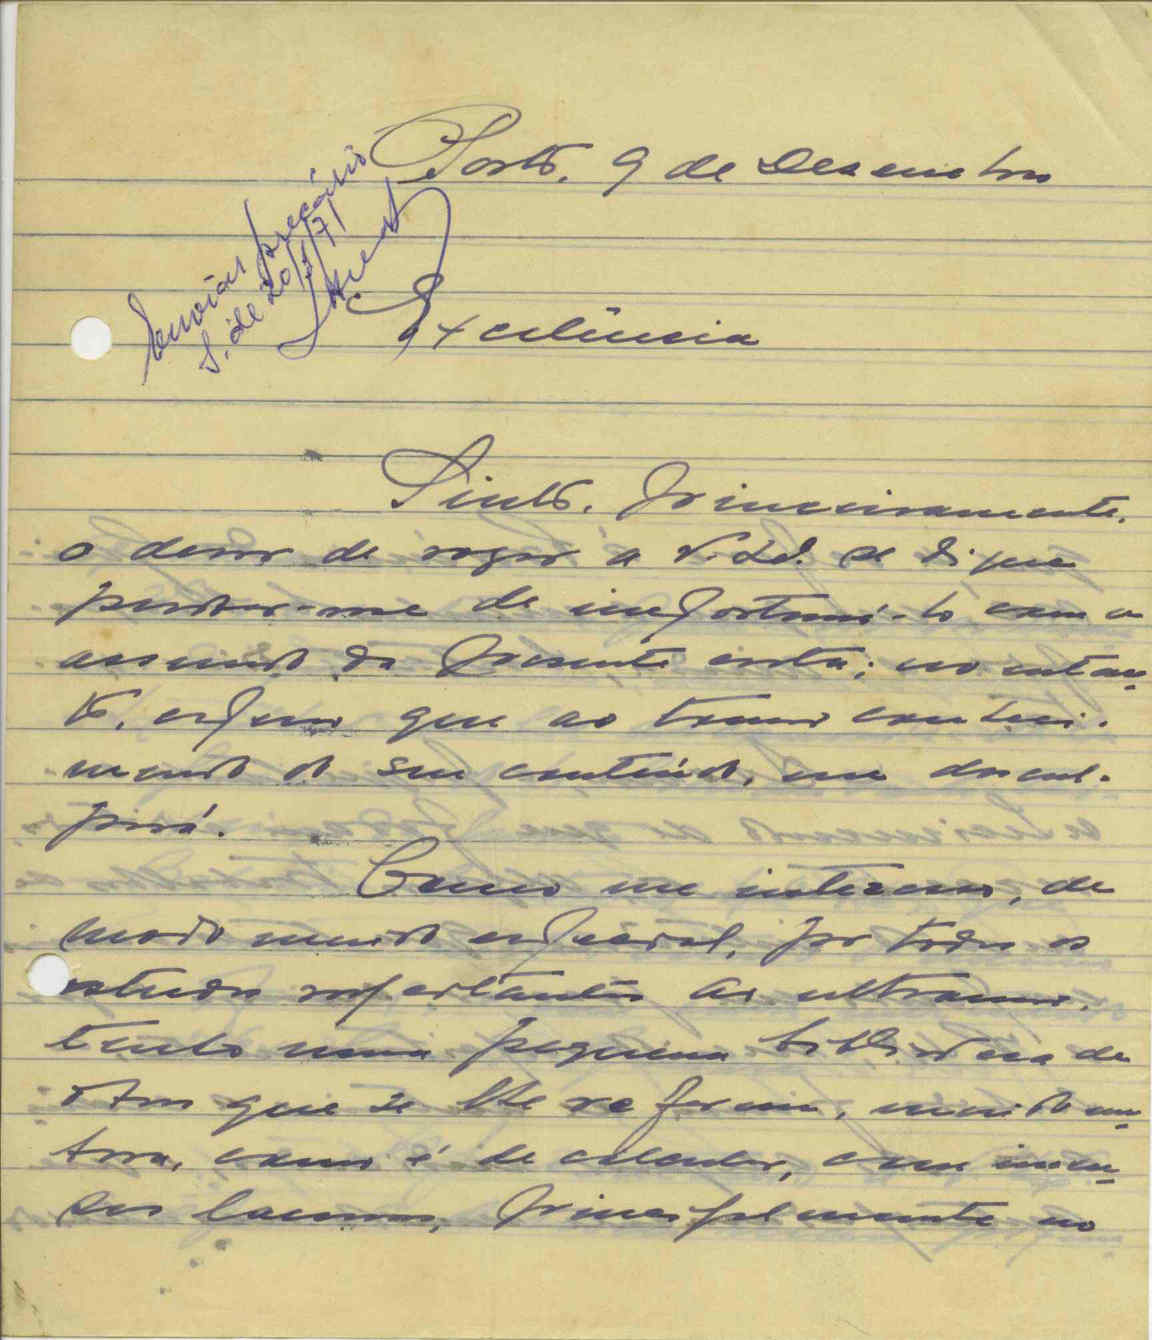 Porto, 9 de Dezembro
Enviar preçário
S. de 20/1/71
Excelência
Sinto, primeiramente,
o dever de rogar a V. Ex. se digne
perdoar-me de importuná-lo com o
assunto da presente carta; no entan-
to, espero que ao tomar conheci-
mento do seu conteúdo, me descul-
pará.
Como me interesso, de
modo muito especial, por todos os
estudos respeitantes ao ultramar,
tenho uma pequena biblioteca de
obras que se lhe referem, muito em-
bora, como é de calcular, com imen-
sas lacunas, principalmente no